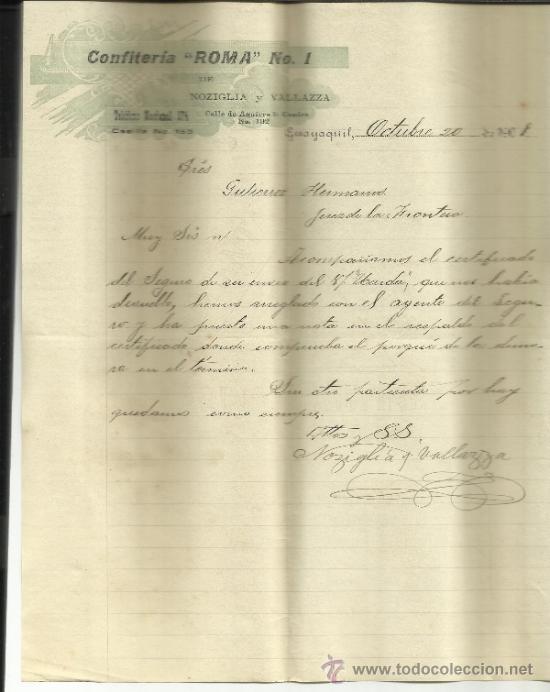 Confitería "ROMA" No. 1
DE
NOZIGLIA y VALLAZZA
Teléfono Nacional 374
Calle de Aguirre 2ª Cuadra
Casilla No 153
No. 112
Guayaquil, Octubre 20 de 190
Sres
Gutierrez Hermanos
Jerez de la Frontera
Muy Srs n/
Acompañamos el certificado
del Seguro de su envio del V/ que nos había
devuelto, hemos arreglado con el agente del Segu-
ro y ha puesto una nota en el respaldo del
certificado donde comprueba el porqué de la demo-
ra en el término.
Sin otro particular por hoy
quedamos como siempre.
Attos y S.S.
Noziglia y Vallazza
todocoleccion
www.todocoleccion.net